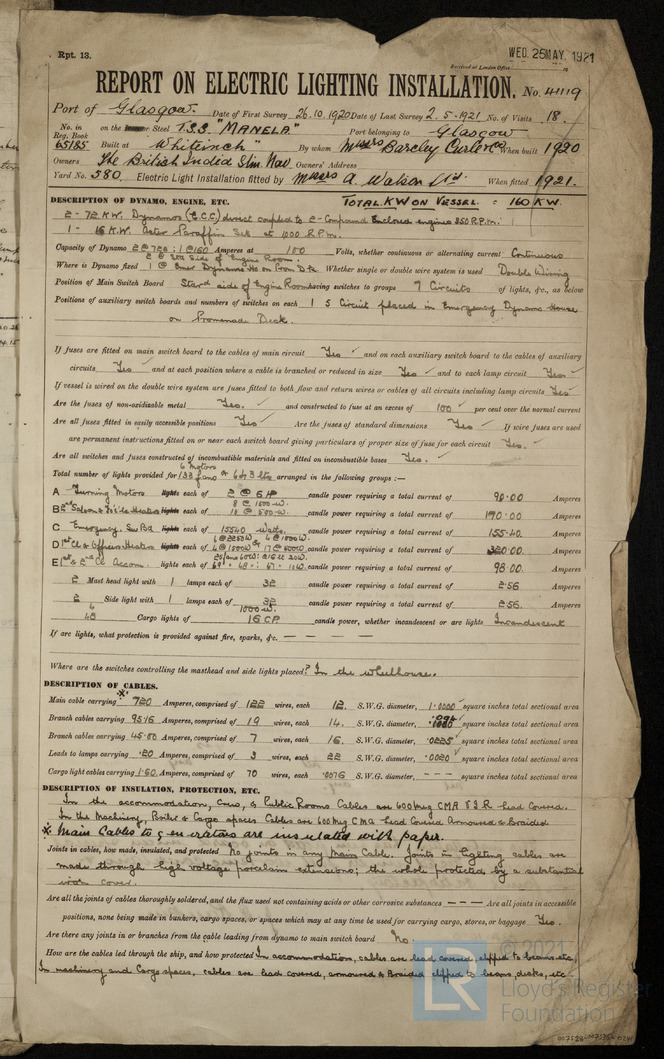 Rpt. 13.
WED. 25 MAY. 1921
Received at London Office
REPORT ON ELECTRIC LIGHTING INSTALLATION. No. 41119
Port of Glasgow. Date of First Survey 26.10.1920 Date of Last Survey 2-5-1921 No. of Visits 18.
No. in Reg. Book on the Iron or Steel T.S.S "MANELA" Port belonging to Glasgow
65185 Built at Whiteinch By whom Messrs Barclay Curle & Co When built 1920
Owners The British India Stm Nav. Owners' Address
Yard No. 580. Electric Light Installation fitted by Messrs A. Watson Ltd. When fitted 1921.
DESCRIPTION OF DYNAMO, ENGINE, ETC. TOTAL KW ON VESSEL = 160 KW.
2 - 72 K.W. Dynamos (E.C.C) direct coupled to 2 - Compound Enclosed engines 350 R.P.M.
1 - 16 K.W. Aster Paraffin Set at 1000 R.P.M.
Capacity of Dynamo 2 @ 720 : 1 @ 160 Amperes at 100 Volts, whether continuous or alternating current Continuous
2 @ Stbd Side of Engine Room.
Where is Dynamo fixed 1 @ Emer Dynamo Ho on Prom Dk. Whether single or double wire system is used Double Wiring
Position of Main Switch Board Starbd side of Engine Room having switches to groups 9 Circuits of lights, &c., as below
Positions of auxiliary switch boards and numbers of switches on each 1 5 Circuit placed in Emergency Dynamo House
on Promenade Deck.
If fuses are fitted on main switch board to the cables of main circuit Yes and on each auxiliary switch board to the cables of auxiliary
circuits Yes and at each position where a cable is branched or reduced in size Yes and to each lamp circuit Yes
If vessel is wired on the double wire system are fuses fitted to both flow and return wires or cables of all circuits including lamp circuits Yes
Are the fuses of non-oxidizable metal Yes. and constructed to fuse at an excess of 100 per cent over the normal current
Are all fuses fitted in easily accessible positions Yes Are the fuses of standard dimensions Yes If wire fuses are used
are permanent instructions fitted on or near each switch board giving particulars of proper size of fuse for each circuit Yes.
Are all switches and fuses constructed of incombustible materials and fitted on incombustible bases Yes.
6 Motors
Total number of lights provided for 133 fans & 643 lts arranged in the following groups :—
A Turning Motors lights each of 2 @ 6 HP candle power requiring a total current of 90.00 Amperes
8 @ 1500 W.
B Saloon & Heaters lights each of 18 @ 500 W. candle power requiring a total current of 190.00 Amperes
C Emergency. Sw Bd lights each of 15540 watts, candle power requiring a total current of 155.40 Amperes
D 1st Cl & Officers Heaters lights each of candle power requiring a total current of 320.00 Amperes
E 1st & 2nd Cl Accom. lights each of candle power requiring a total current of 98.00 Amperes
2 Mast head light with 1 lamps each of 32 candle power requiring a total current of 2.56 Amperes
2 Side light with 1 lamps each of 32 candle power requiring a total current of 2.56. Amperes
6 1000 W.
48 Cargo lights of 16 CP candle power, whether incandescent or arc lights Incandescent
If arc lights, what protection is provided against fire, sparks, &c. — — — —
Where are the switches controlling the masthead and side lights placed? In the wheelhouse.
DESCRIPTION OF CABLES.
Main cable carrying * 720 Amperes, comprised of 122 wires, each 12. S.W.G. diameter, 1.0000 square inches total sectional area
Branch cables carrying 95.16 Amperes, comprised of 19 wires, each 14. S.W.G. diameter, .094 square inches total sectional area
Branch cables carrying 45.80 Amperes, comprised of 7 wires, each 16. S.W.G. diameter, .0225 square inches total sectional area
Leads to lamps carrying .20 Amperes, comprised of 3 wires, each 22 S.W.G. diameter, .0020 square inches total sectional area
Cargo light cables carrying 1.60 Amperes, comprised of 70 wires, each .0076 S.W.G. diameter, - - - square inches total sectional area
DESCRIPTION OF INSULATION, PROTECTION, ETC.
In the accommodation, Crews, & Public Rooms Cables are 600 meg CMA V.I.R. Lead Covered.
In the Machinery, Boiler & Cargo spaces Cables are 600 meg CMA Lead Covered Armoured & Braided
* Main Cables to generators are insulated with paper.
Joints in cables, how made, insulated, and protected No joints in any Main Cable. Joints in lighting cables are
made through high voltage porcelain extensions; the whole protected by a substantial
iron cover.
Are all the joints of cables thoroughly soldered, and the flux used not containing acids or other corrosive substances — — — Are all joints in accessible
positions, none being made in bunkers, cargo spaces, or spaces which may at any time be used for carrying cargo, stores, or baggage Yes.
Are there any joints in or branches from the cable leading from dynamo to main switch board No.
How are the cables led through the ship, and how protected In accommodation, cables are lead covered, clipped to beams, etc,
In machinery and Cargo spaces, cables are lead covered, armoured & Braided clipped to beams, decks, etc
© 2021
LR
Lloyd's Register
Foundation